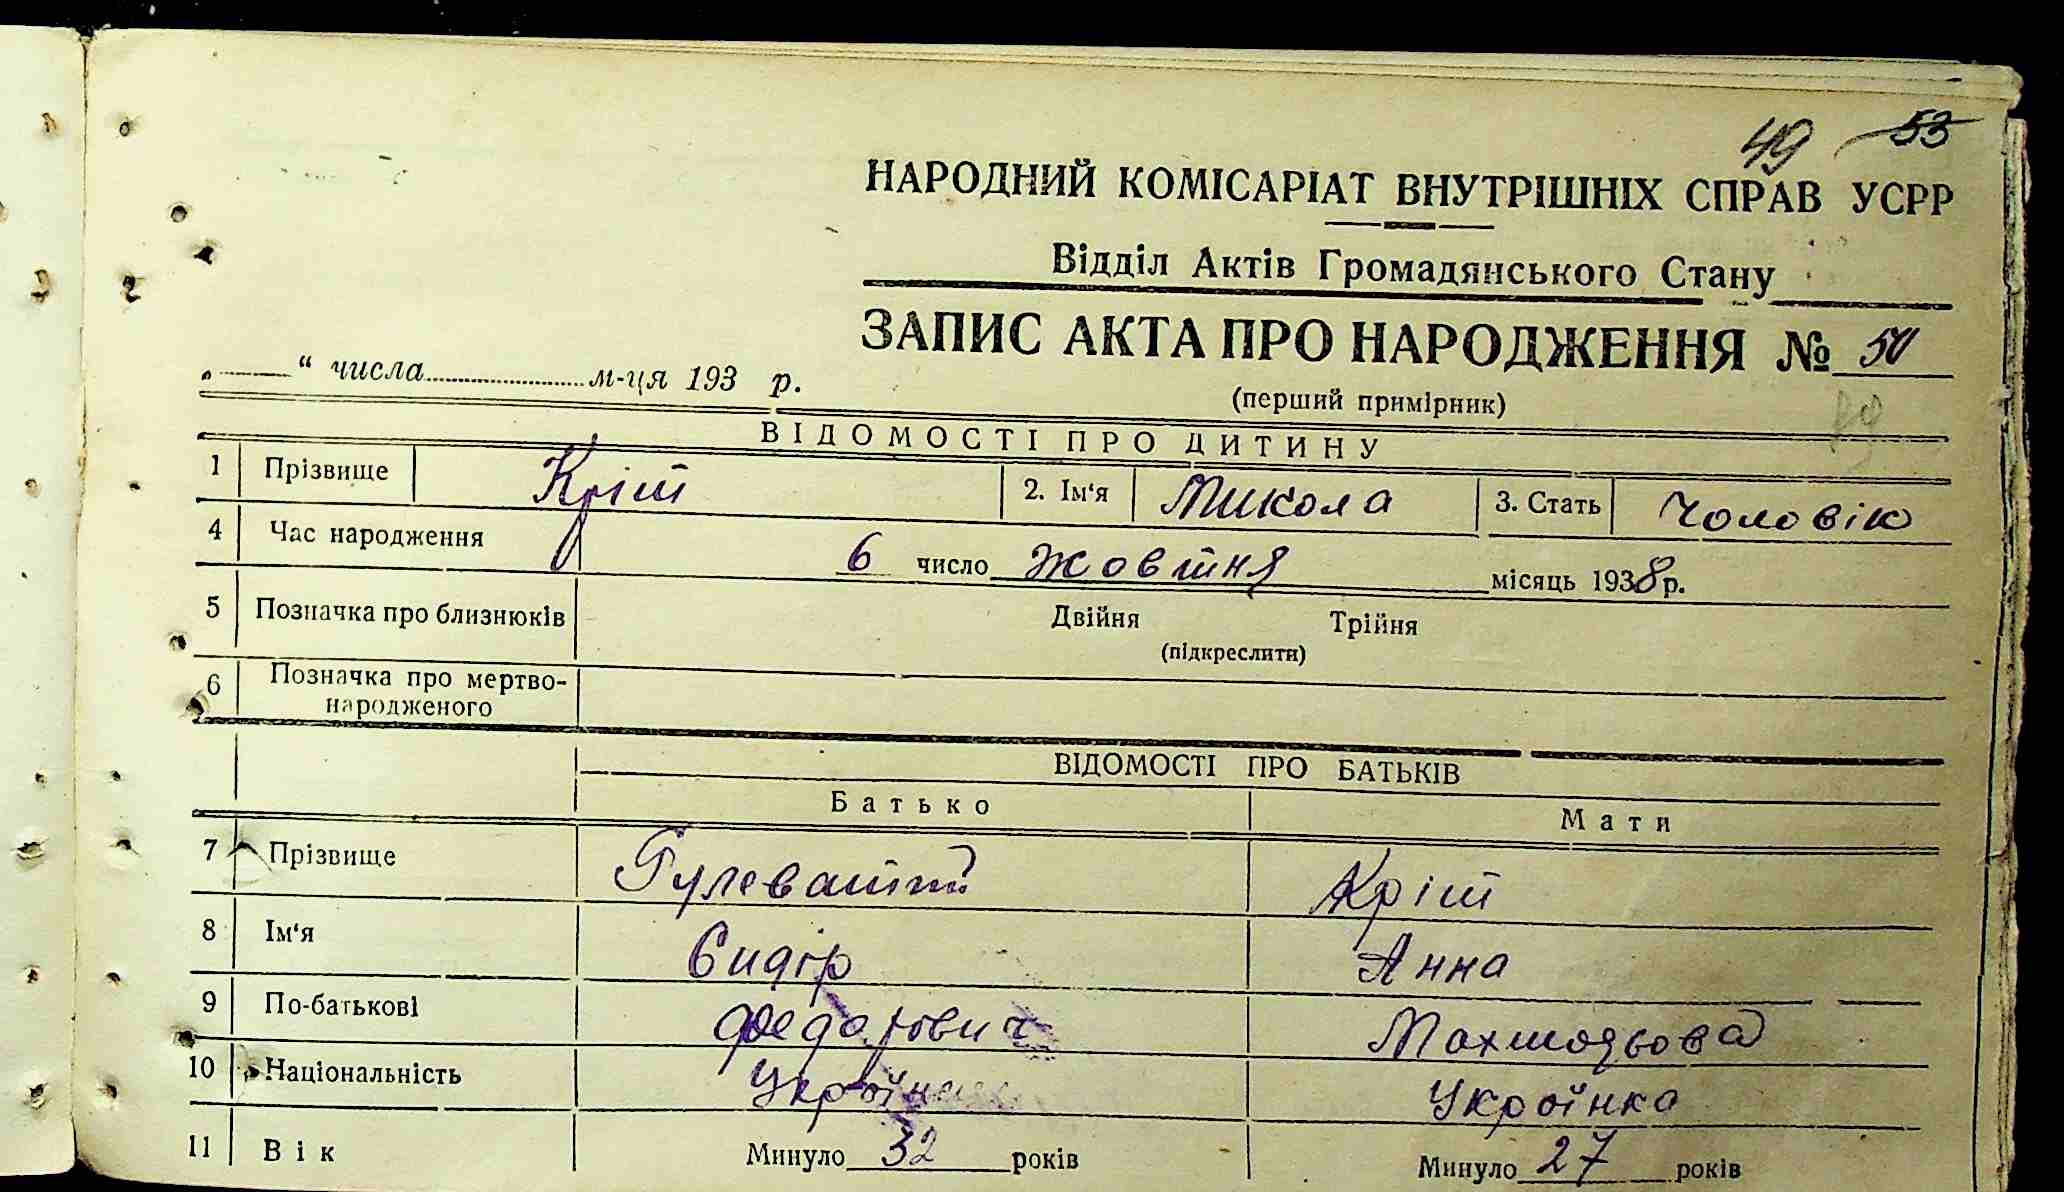 49 53
НАРОДНИЙ КОМІСАРІАТ ВНУТРІШНІХ СПРАВ УСРР
Відділ Актів Громадянського Стану
ЗАПИС АКТА ПРО НАРОДЖЕННЯ № 50
„ “ числа м-ця 193 р.
(перший примірник)
ВІДОМОСТІ ПРО ДИТИНУ
1 Прізвище Кріт 2. Ім‘я Микола 3. Стать Чоловік
4 Час народження 6 число жовтня місяць 1938 р.
5 Позначка про близнюків Двійня Трійня
(підкреслити)
6 Позначка про мертво-
народженого
ВІДОМОСТІ ПРО БАТЬКІВ
Батько Мати
7 Прізвище Гулеватий Кріт
8 Ім‘я Сидір Анна
9 По-батькові Федорович
10 Національність Українець Українка
11 Вік Минуло 32 років Минуло 27 років